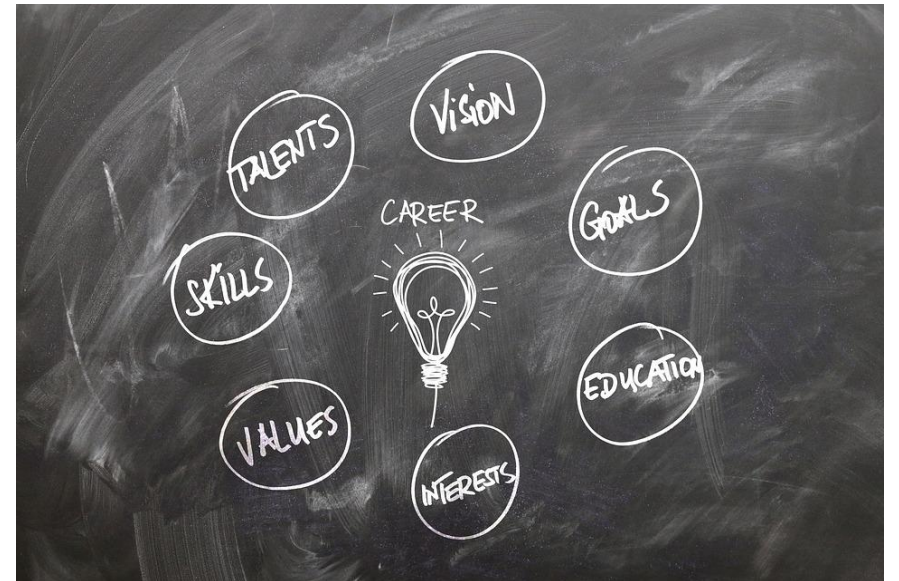 VISION
TALENTS
GOALS
CAREER
SKILLS
EDUCATION
VALUES
INTERESTS